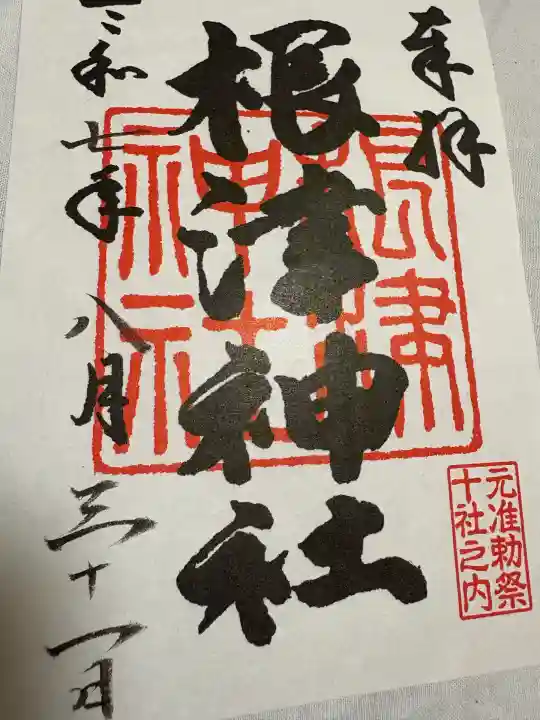 奉拝
根津神社
根津神社
元准勅祭
十社之内
令和七年八月三十一日